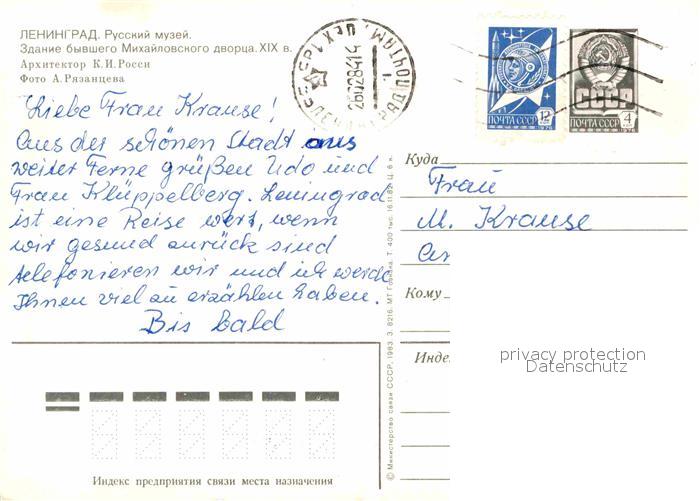 ЛЕНИНГРАД. Русский музей.
Здание бывшего Михайловского дворца. XIX в.
Архитектор К.И. Росси
Фото А. Рязанцева
Liebe Frau Krause!
Aus der schönen Stadt aus
weiter Ferne grüßen Udo und
Frau Klüppelberg. Leningrad
ist eine Reise wert, wenn
wir gesund zurück sind
telefonieren wir und ich werde
Ihnen viel zu erzählen haben.
Bis bald
ПОЧТА СССР
12
1976
СССР
ПОЧТА СССР
4
1976
Куда
Frau
M. Krause
Кому
Инде
privacy protection
Datenschutz
© Министерство связи СССР, 1983. З. 8216. МТ Гознака. Т. 400 тыс. 16.11.82. Ц. 6 к.
Индекс предприятия связи места назначения